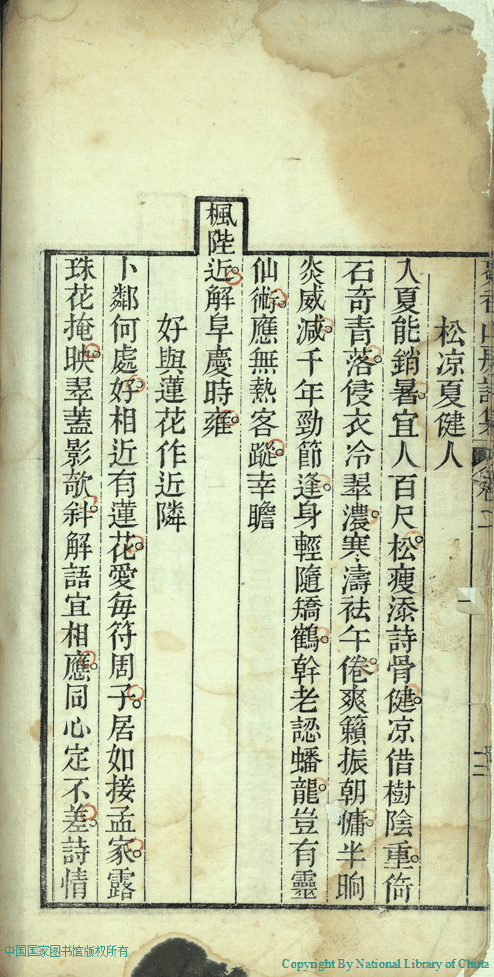 松凉夏健人
入夏能銷暑宜人百尺松瘦添詩骨健凉借樹陰重倚
石奇青落侵衣冷翠濃寒濤祛午倦爽籟振朝慵半晌
炎威減千年勁節逢身輕隨矯鶴幹老認蟠龍豈有靈
仙術應無熱客蹤幸瞻
楓陛近解阜慶時雍
好與蓮花作近隣
卜鄰何處好相近有蓮花愛每符周子居如接孟家露
珠花掩映翠蓋影欹斜解語宜相應同心定不差詩情
中国国家图书馆版权所有
Copyright By National Library of China